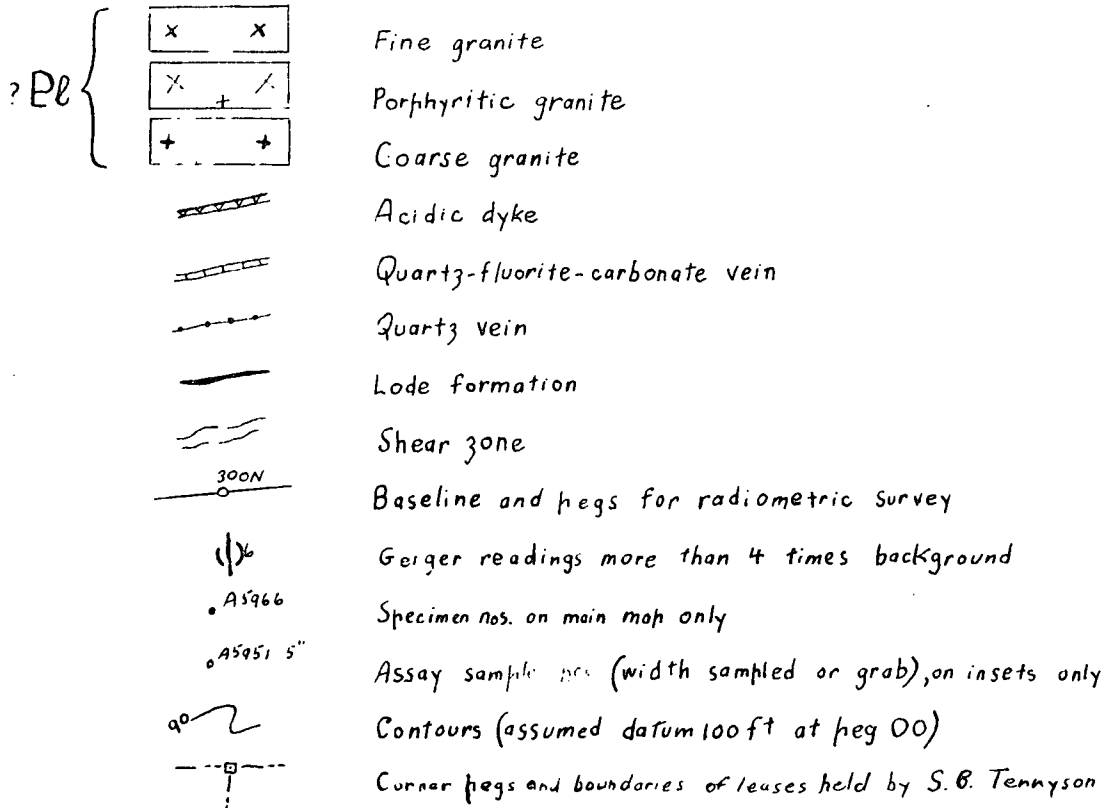 Fine granite
? Pl
Porphyritic granite
Coarse granite
Acidic dyke
Quartz-fluorite-carbonate vein
Quartz vein
Lode formation
Shear zone
300N
Baseline and pegs for radiometric survey
6
Geiger readings more than 4 times background
A5966
Specimen nos. on main map only
A5951 5"
Assay sample (width sampled or grab), on insets only
90
Contours (assumed datum 100 ft at peg 00)
Corner pegs and boundaries of leases held by S. B. Tennyson